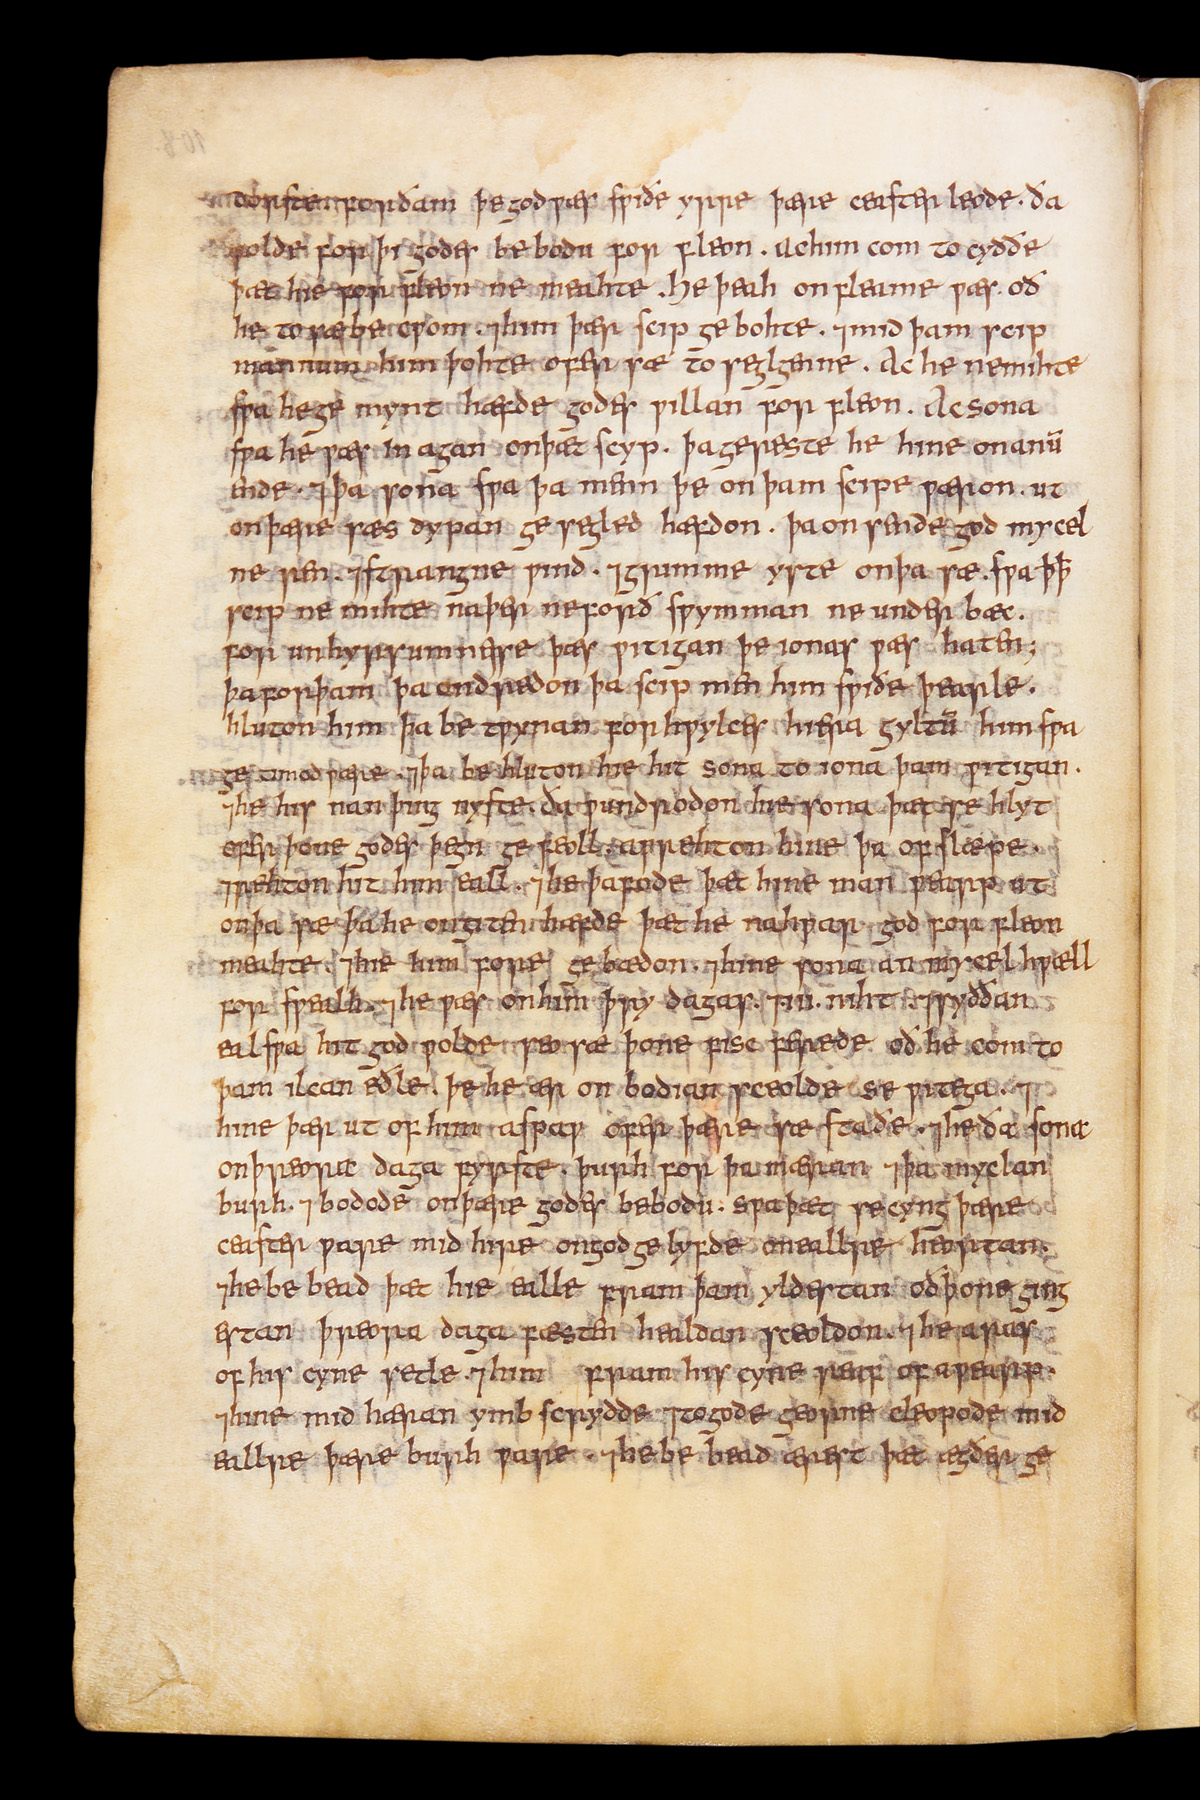 dorste forðam þe god wæs swiðe yrre þære ceaster leode. ða
wolde for þi godes be bodu for fleon. Ac him com to cyððe
þæt hie for fleon ne meahte. He þeah on fleame wæs. oð
he to sæ be cwom. ⁊ him þær scip ge bohte. ⁊ mid þam scip
mannum him þohte ofer sæ to seglgenne. Ac he ne mihte
swa he ge mynt hæfde godes willan for fleon. Ac sona
swa he wæs in agan on þæt scyp. þa gereste he hine on anū
ende. ⁊ þa sona swa þa menn þe on þam scipe wæron. ut
on þære sæs dypan ge segled hæfdon. þa on sende god mycel
ne ren. ⁊ strangne wind. ⁊ grumme yste on þa sæ. swa þꝥ
scip ne mihte naþer ne forð swymman ne under bæc.
for unhyrsumnesse þæs witigan þe ionas wæs haten;
þa forþam þa ondredon þa scip men him swiðe þearle.
hluton him þa be tweonan for hwylces hiera gyltū him swa
ge timod wære. ⁊ þa be hluton hie hit sona to iona þam witigan.
⁊ he his nan þing nyste. ða wundrodon hie sona þæt se hlyt
ofer þone godes þegn ge feoll. awrehton hine þa of slæpe.
⁊ rehton hit him eall. ⁊ he þa fode þæt hine man wearp ut
on þa sæ þa he ongiten hæfde þæt he nahwar god for fleon
meahte. ⁊ hie him fore ge bædon. ⁊ hine sona an mycel hwæll
for swealh. ⁊ he wæs on him þry dagas. ⁊ iii. niht. ⁊ syððan
eal swa hit god wolde seo sæ þone fisc ferede oð he com to
þam ilcan eðle. þe he ær on bodian sceolde se witega. ⁊
hine þær ut of him aspaw ofer þære sæ staðe. ⁊ he ða sona
on þreora daga fyrste. þurh for þa mæran ⁊ þa myclan
burh. ⁊ bodode on þære godes bebodu. swa þæt se cyng þære
ceaster ware mid hire on god gelyfde on eallre heortan.
⁊ he be bead þæt hie ealle fram þam yldestan oð þone ging
estan þreora daga fæsten healdan sceoldon. ⁊ he aras
of his cyne setle. ⁊ him fram his cyne reaf of awearp.
⁊ hine mid hæran ymb scrydde ⁊ to gode georne cleopode mid
eallre þære burh ware. ⁊ he be bead ærest þæt ægðer ge